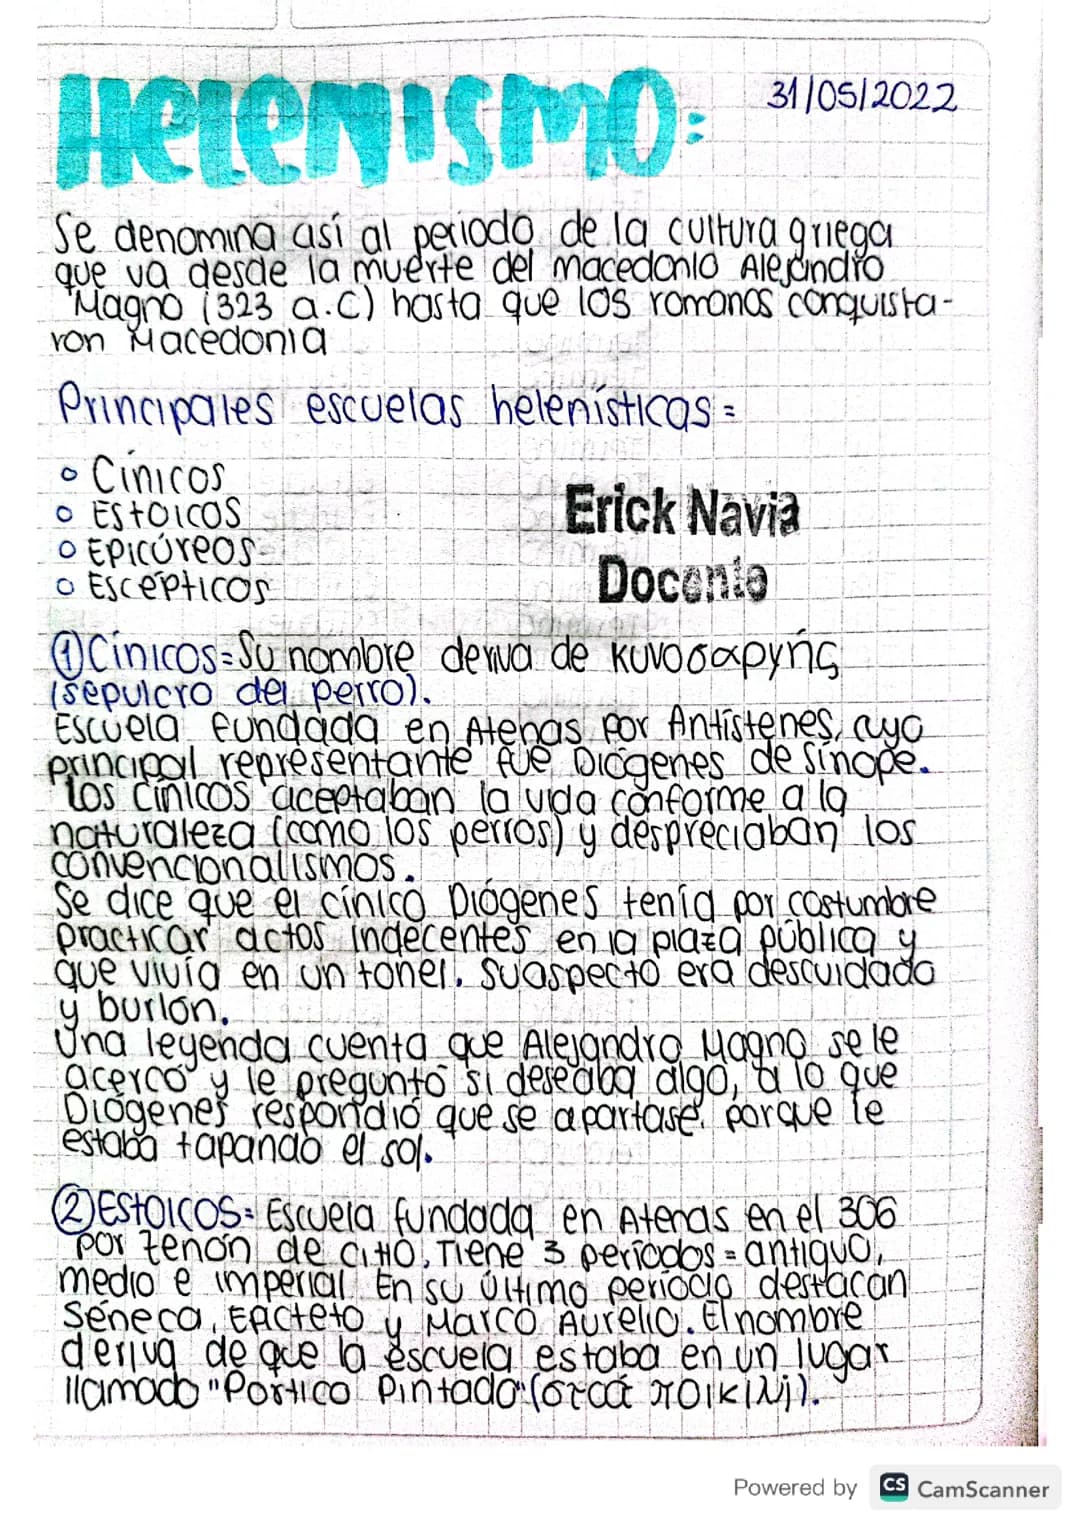 Helenismo:
31/05/2022
Se denomina así al periodo de la cultura griega
que va desde la muerte del macedonio Alejandro
Magno (323 a.C) hasta que los romanos conquista-
ron Macedonia
Principales escuelas helenísticas=
o Cínicos
o Estoicos
o Epicúreos
o Escépticos
Erick Navia
Docente
① Cínicos= Su nombre deriva de κυνοσαργής
(sepulcro del perro).
Escuela fundada en Atenas por Antístenes, cuyo
principal representante fue Diógenes de Sinope.
Los cínicos aceptaban la vida conforme a la
naturaleza (como los perros) y despreciaban los
convencionalismos.
Se dice que el cínico Diógenes tenía por costumbre
practicar actos indecentes en la plaza pública y
que vivía en un tonel. Su aspecto era descuidado
y burlón.
Una leyenda cuenta que Alejandro Magno se le
acercó y le preguntó si deseaba algo, a lo que
Diógenes respondió que se apartase porque le
estaba tapando el sol.
② Estoicos= Escuela fundada en Atenas en el 306
por Zenón de Citio. Tiene 3 períodos= antiguo,
medio e imperial. En su último período destacan
Séneca, Epicteto y Marco Aurelio. El nombre
deriva de que la escuela estaba en un lugar
llamado "Pórtico Pintado" (στοά ποικίλη).
Powered by CS CamScanner